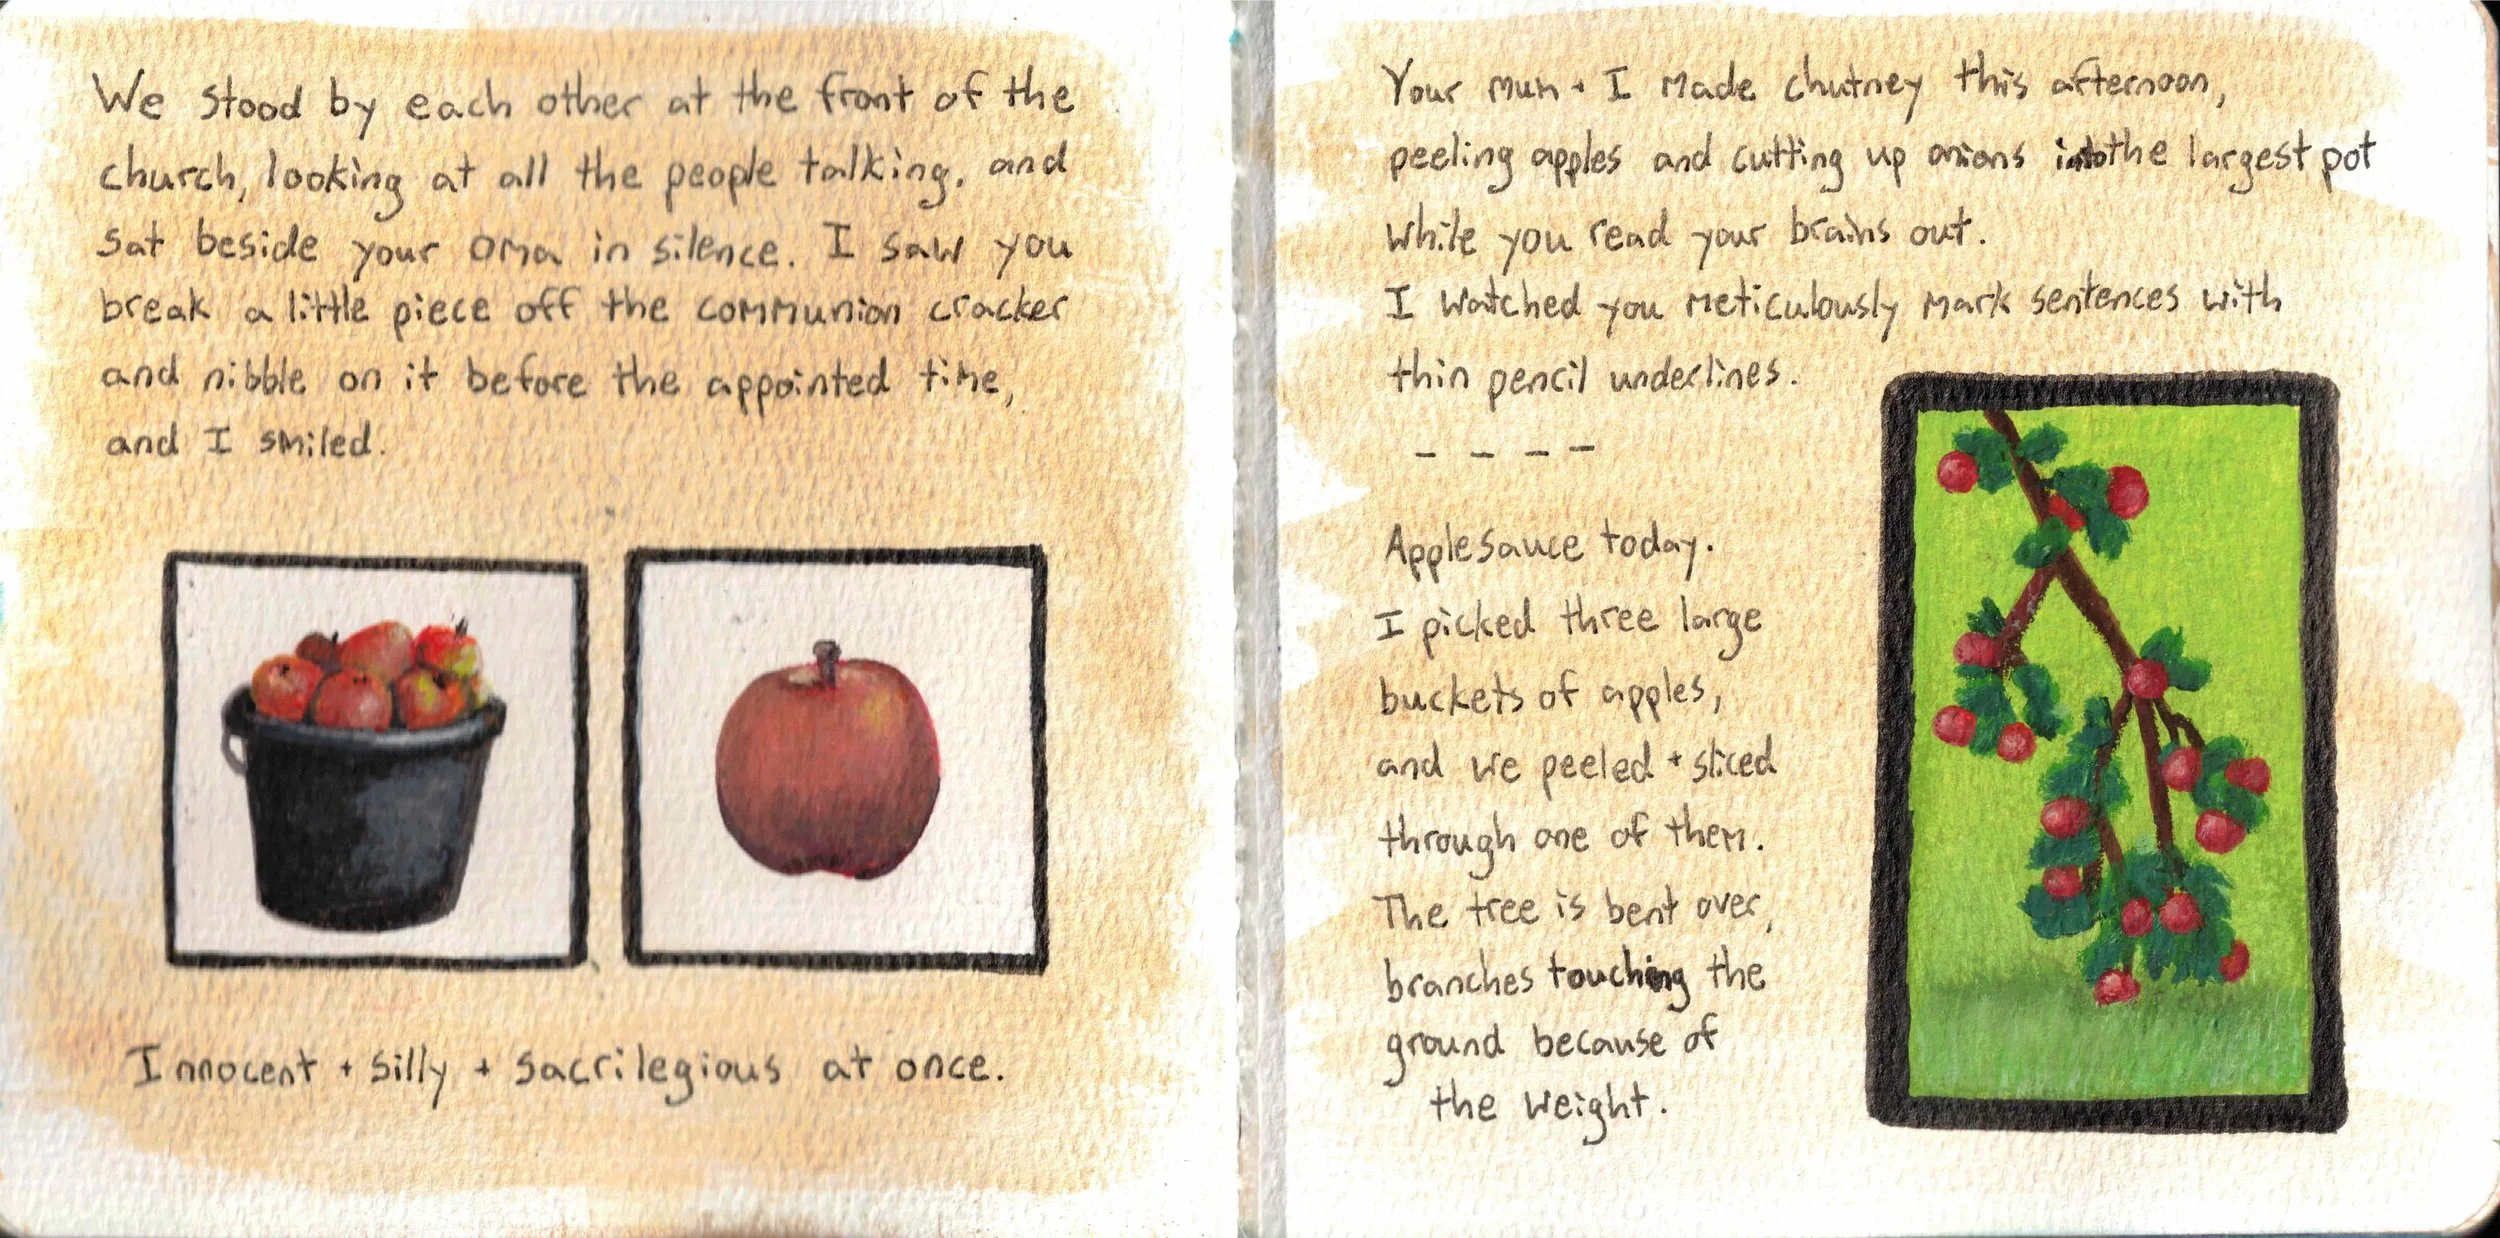 We stood by each other at the front of the
church, looking at all the people talking, and
sat beside your Oma in silence. I saw you
break a little piece off the communion cracker
and nibble on it before the appointed time,
and I smiled.
Innocent + silly + sacrilegious at once.
Your mum + I made chutney this afternoon,
peeling apples and cutting up onions into the largest pot
while you read your brains out.
I watched you meticulously mark sentences with
thin pencil underlines.
– – – –
Applesauce today.
I picked three large
buckets of apples,
and we peeled + sliced
through one of them.
The tree is bent over,
branches touching the
ground because of
the weight.